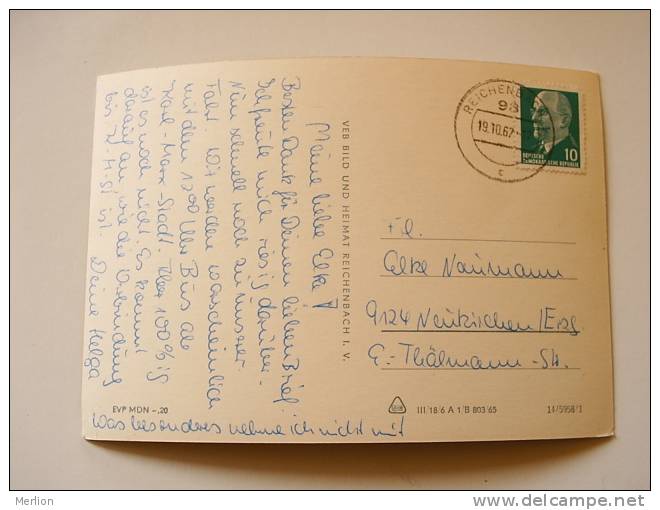 Meine liebe Elke!
Besten Dank für Deinen lieben Brief.
Ich freute mich riesig darüber.
Nun schnell noch zu unserer
Fahrt. Wir werden warscheinlich
mit dem 1300 Uhr Bus ab
Karl-Marx-Stadt. Aber 100%ig
ist es noch nicht. Es kommt
darauf an, wie die Verbindung
bis z. H.St ist. Deine Helga
was besonderes nehme ich nicht mit
VEB BILD UND HEIMAT REICHENBACH I. V.
REICHENB
98
19.10.67
c
10
DEUTSCHE
DEMOKRATISCHE REPUBLIK
Frl.
Elke Naumann
9124 Neukirchen/Erzg.
E.-Thälmann-Str.
EVP MDN -,20
III/18/6 A 1/B 803/65
14/5958/1
Merlion
www.delcampe.net